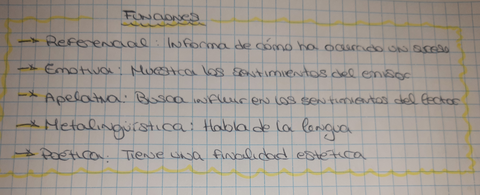 Funciones
→ Referencial: Informa de cómo ha ocurrido un suceso
→ Emotiva: Muestra los sentimientos del emisor
→ Apelativa: Busca influir en los sentimientos del lector
→ Metalingüística: Habla de la lengua
→ Poética: Tiene una finalidad estética